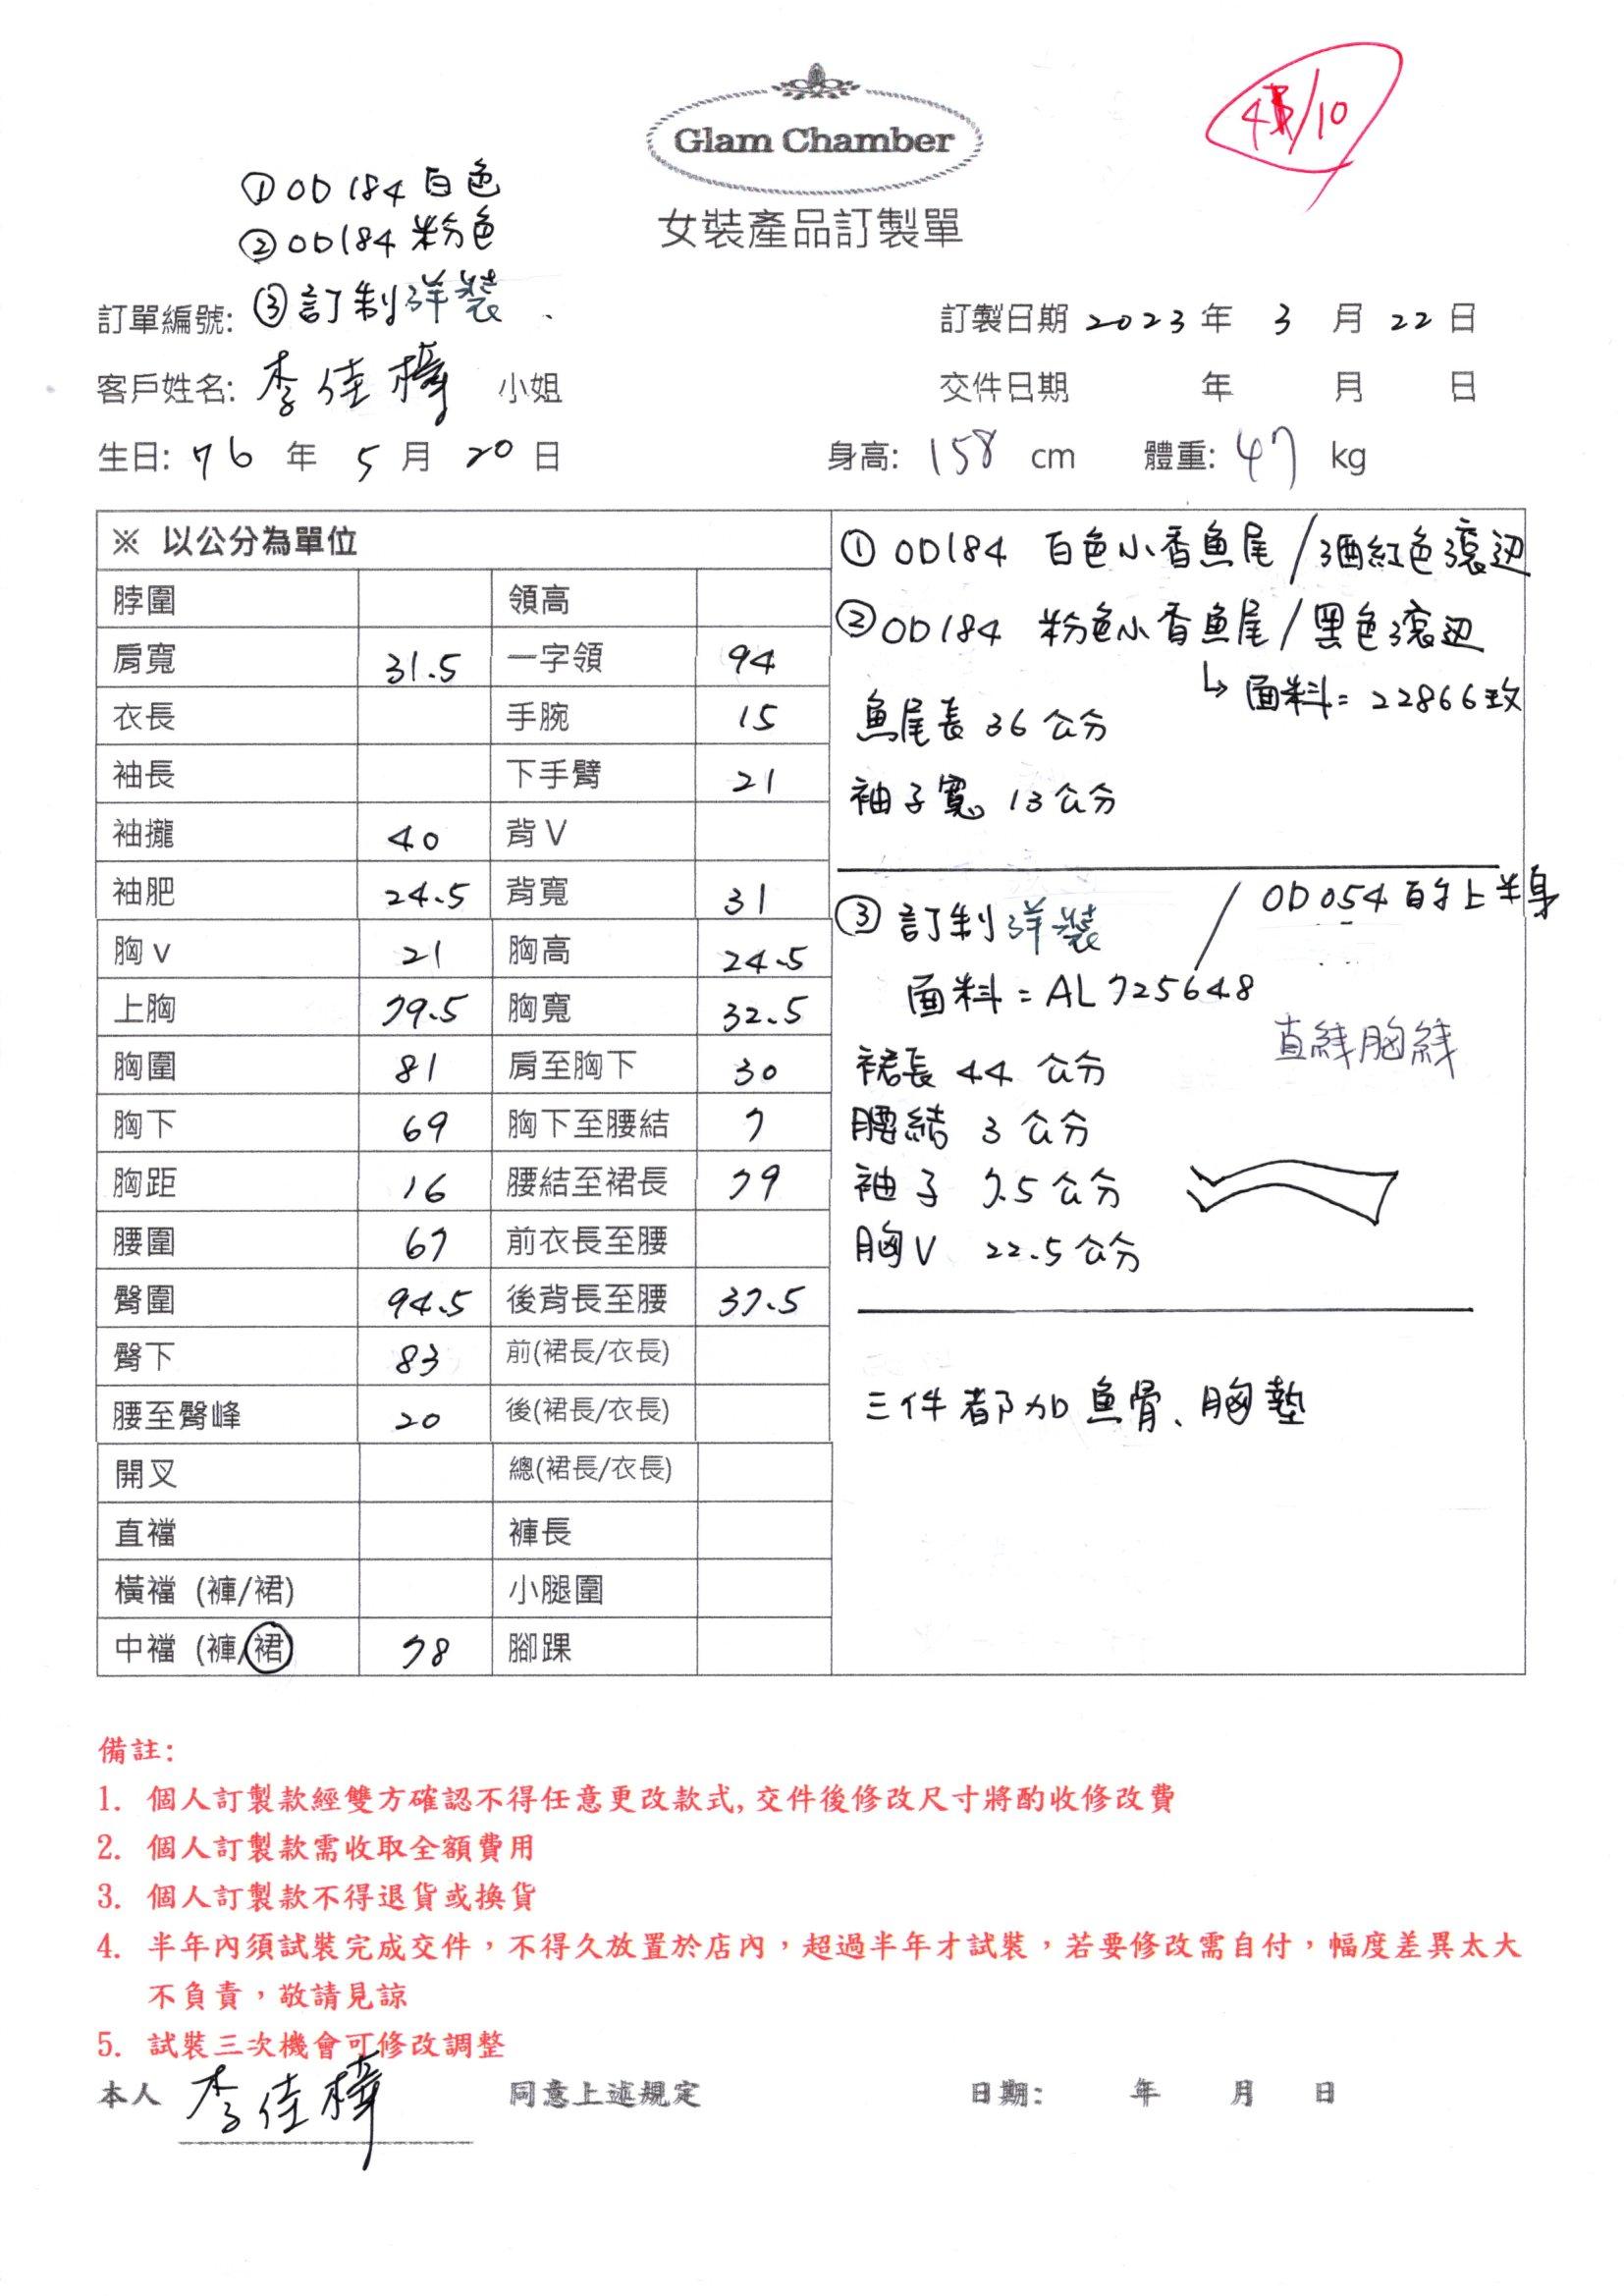 Glam Chamber
女裝產品訂製單
/10
①OD184 白色
②OD184 粉色
訂單編號: ③訂制洋裝
訂製日期 2023 年 3 月 22 日
客戶姓名: 李佳樟 小姐
交件日期 年 月 日
生日: 76 年 5 月 20 日
身高: 158 cm 體重: 47 kg
※ 以公分為單位
脖圍 領高
肩寬 31.5 一字領 94
衣長 手腕 15
袖長 下手臂 21
袖攏 40 背V
袖肥 24.5 背寬 31
胸v 21 胸高 24.5
上胸 79.5 胸寬 32.5
胸圍 81 肩至胸下 30
胸下 69 胸下至腰結 7
胸距 16 腰結至裙長 79
腰圍 67 前衣長至腰
臀圍 94.5 後背長至腰 37.5
臀下 83 前(裙長/衣長)
腰至臀峰 20 後(裙長/衣長)
開叉 總(裙長/衣長)
直襠 褲長
橫襠 (褲/裙) 小腿圍
中襠 (褲/裙) 78 腳踝
① OD184 白色小香魚尾/酒紅色滾边
②OD184 粉色小香魚尾/黑色滾边
↳ 面料=22866玫
魚尾長 36 公分
袖子寬 13公分
③ 訂制洋裝 / OD054 白色上半身
面料=AL725648
直綫胸綫
裙長 44 公分
腰結 3 公分
袖子 7.5公分
胸V 22.5公分
三件都加魚骨、胸墊
備註:
1. 個人訂製款經雙方確認不得任意更改款式,交件後修改尺寸將酌收修改費
2. 個人訂製款需收取全額費用
3. 個人訂製款不得退貨或換貨
4. 半年內須試裝完成交件,不得久放置於店內,超過半年才試裝,若要修改需自付,幅度差異太大
不負責,敬請見諒
5. 試裝三次機會可修改調整
本人 李佳樟 同意上述規定 日期: 年 月 日